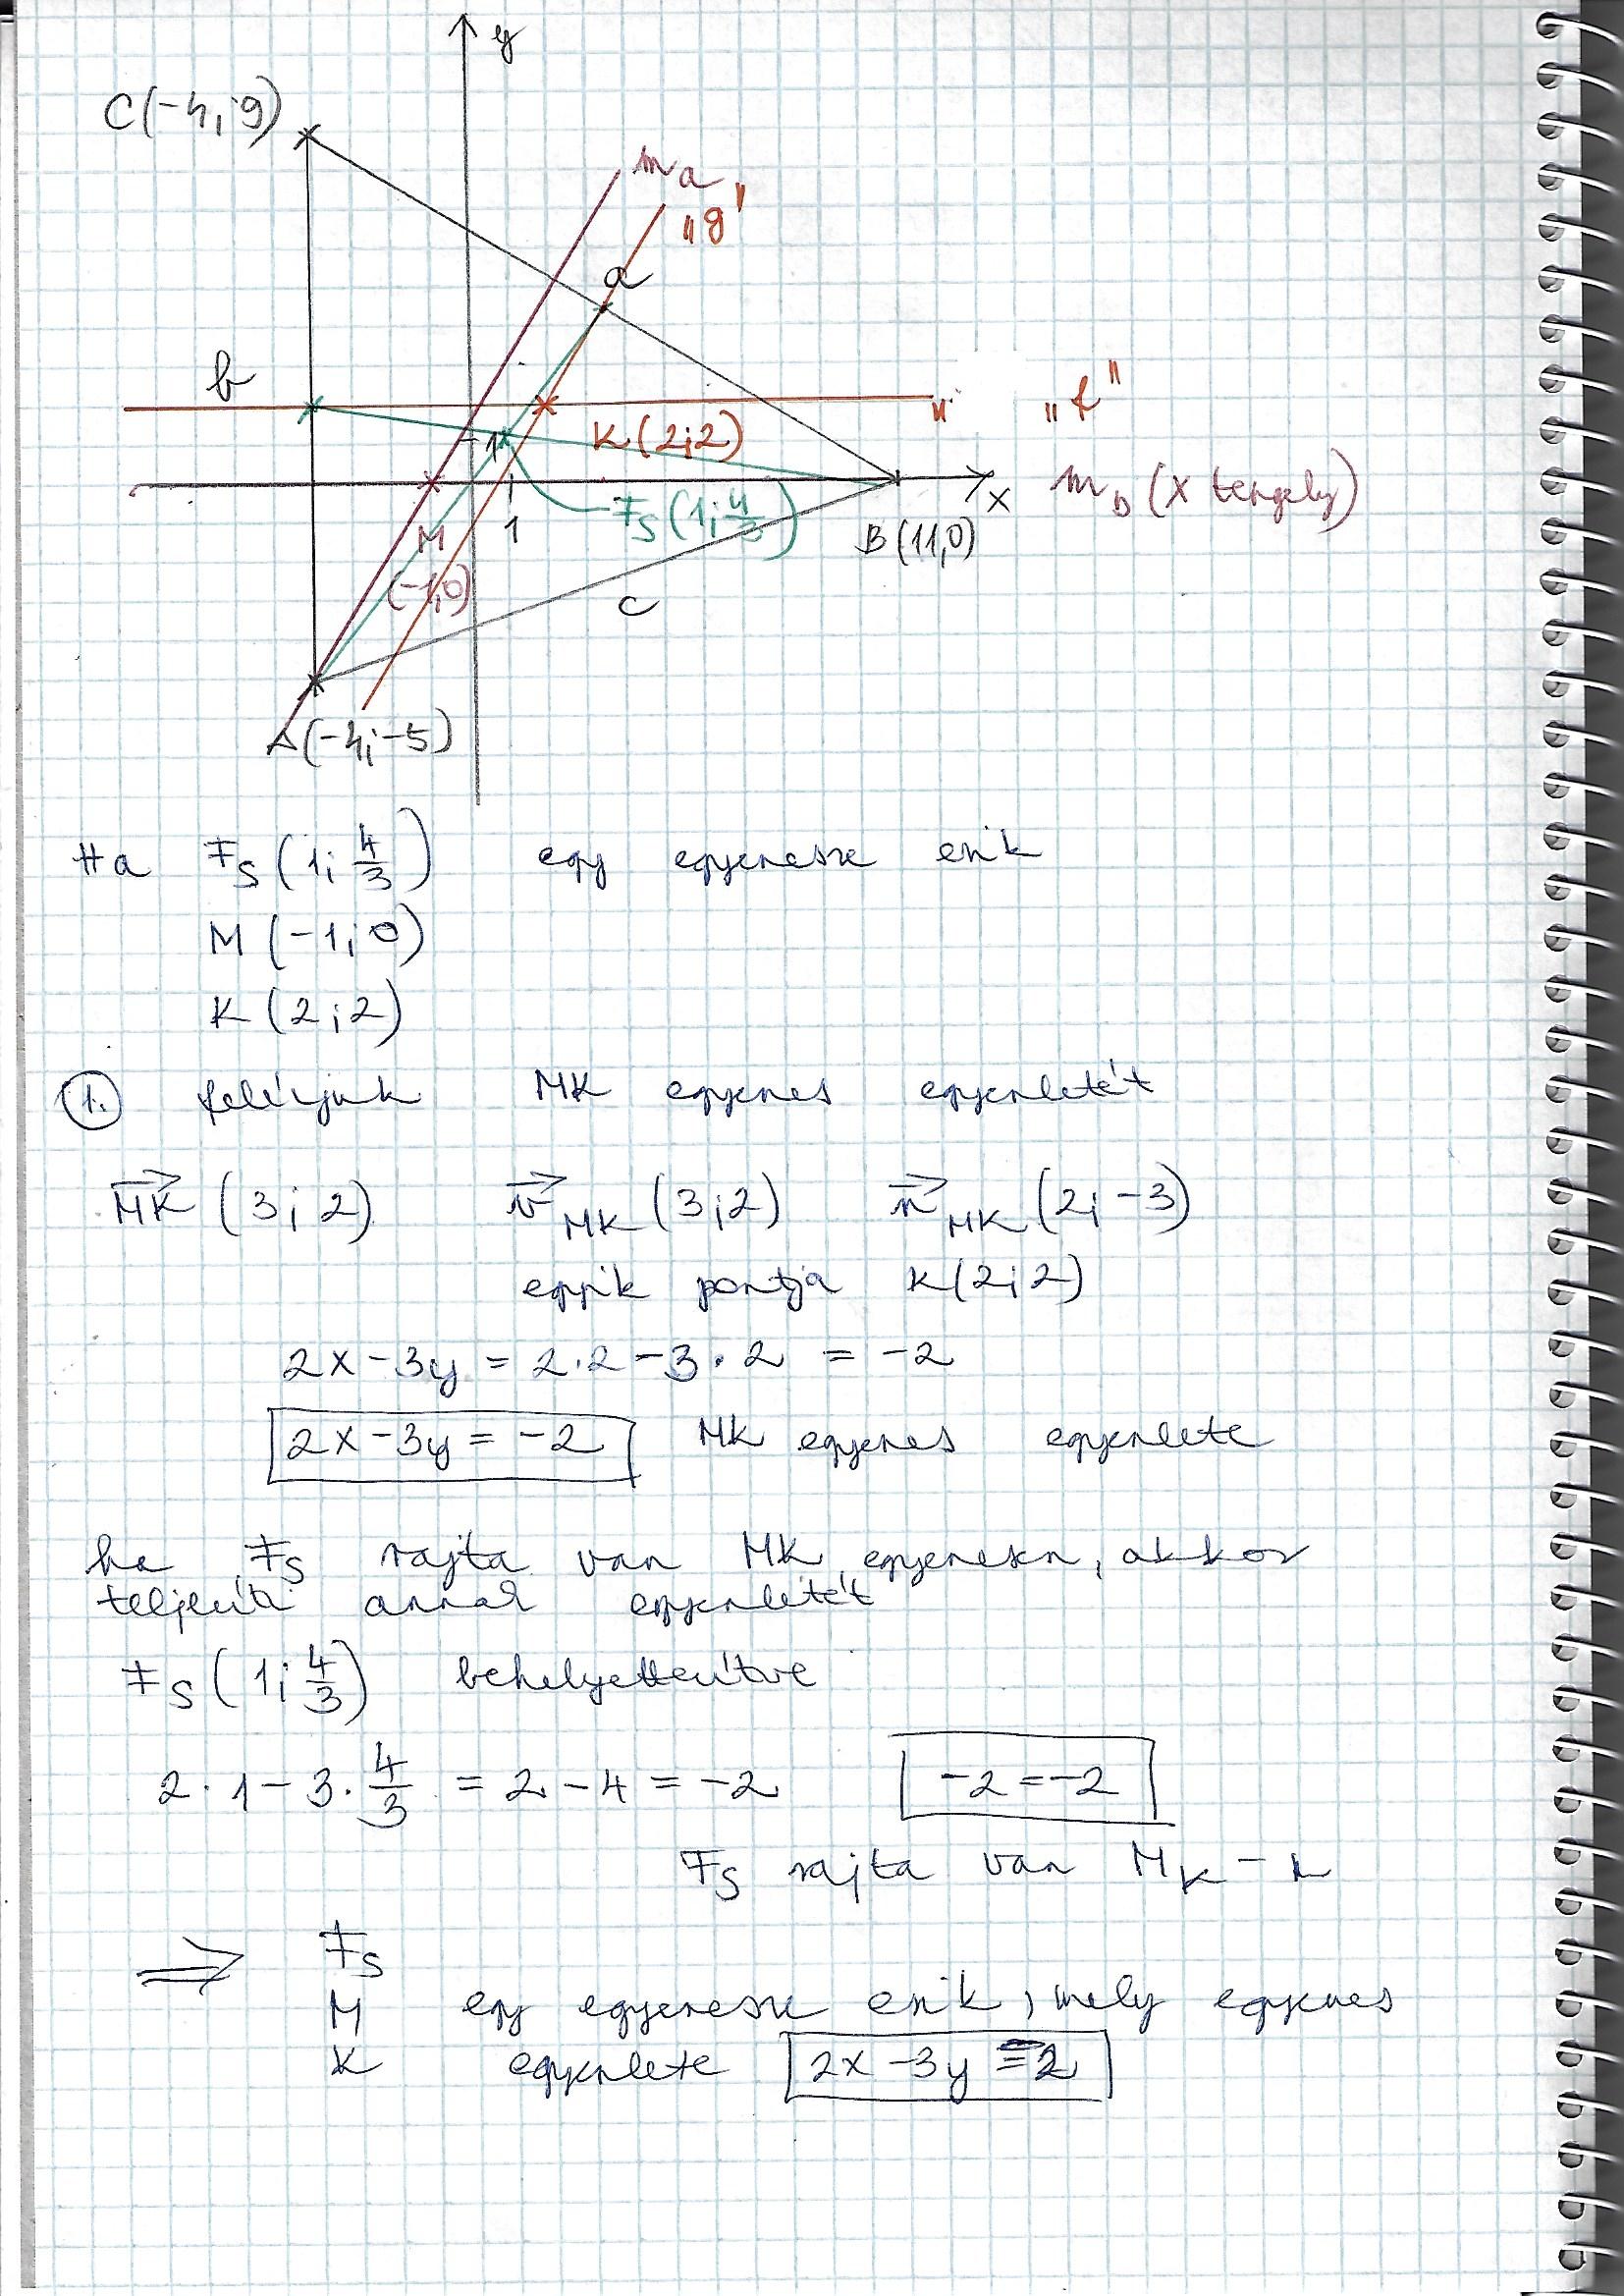 y
C(-4; 9)
m a
„g”
a
b
„f”
K(2;2)
1
x
m b (x tengely)
M
1
FS(1; 4/3)
B(11,0)
(-1,0)
c
A(-4; -5)
Ha FS(1; 4/3) egy egyenesre esik
M(-1; 0)
K(2; 2)
1. felírjuk MK egyenes egyenletét
MK (3; 2) v MK (3; 2) n MK (2; -3)
egyik pontja K(2; 2)
2x - 3y = 2·2 - 3·2 = -2
2x - 3y = -2 MK egyenes egyenlete
ha FS rajta van MK egyenesen, akkor
teljesíti annak egyenletét
FS(1; 4/3) behelyettesítve
2·1 - 3·4/3 = 2 - 4 = -2 -2 = -2
FS rajta van MK-n
⇒ FS
M egy egyenesre esik, mely egyenes
K egyenlete 2x - 3y = -2